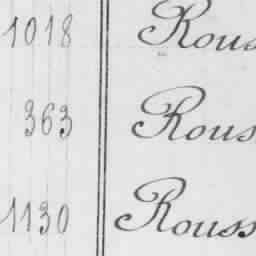 1018 Rous
363 Rous
1130 Rouss